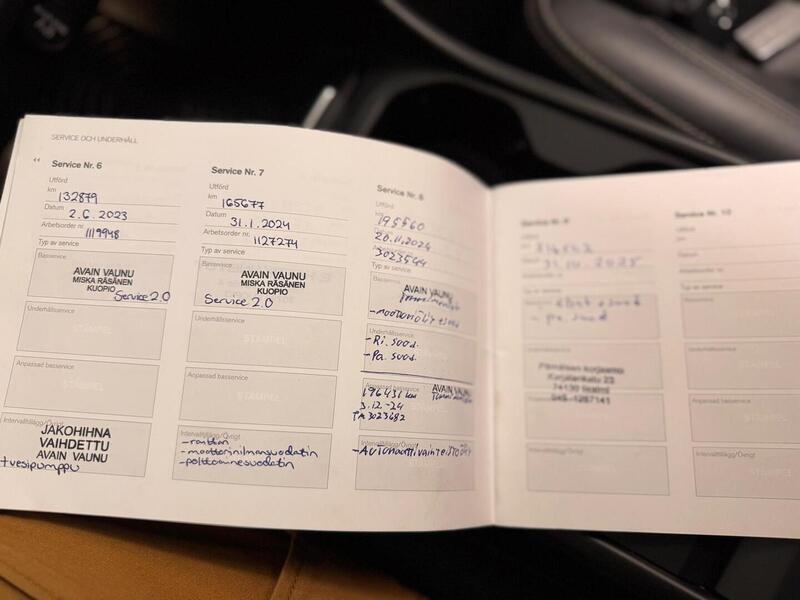 SERVICE OCH UNDERHÅLL
Service Nr. 6
Utförd
km
132879
Datum
2.6.2023
Arbetsorder nr.
1119948
Typ av service
Basservice
AVAIN VAUNU
MISKA RÄSÄNEN
KUOPIO
Service 2.0
Underhållsservice
STÄMPEL
Anpassad basservice
STÄMPEL
Intervalltillägg/Övrigt
JAKOHIHNA
VAIHDETTU
AVAIN VAUNU
+vesipumppu
Service Nr. 7
Utförd
km
165677
Datum
31.1.2024
Arbetsorder nr.
1127274
Typ av service
Basservice
AVAIN VAUNU
MISKA RÄSÄNEN
KUOPIO
Service 2.0
Underhållsservice
STÄMPEL
Anpassad basservice
STÄMPEL
Intervalltillägg/Övrigt
-raitisn
-moottorinilmansuodatin
-polttoainesuodatin
Service Nr. 8
Utförd
km
195560
Datum
20.11.2024
3023544
Typ av service
Basservice
AVAIN VAUNU
-moottoriöljy +suod
Underhållsservice
-Ri. suod.
-Pa. suod.
Anpassad basservice
AVAIN VAUNU
196431 km
3.12-24
TA 3023682
Intervalltillägg/Övrigt
-Automaattivaihteistoöljy
Service Nr. 9
31.10.2025
- pa. suod
Korjalankatu 23
74130 Iisalmi
Anpassad basservice
Intervalltillägg/Övrigt
Service Nr. 10
Datum
Arbetsorder nr
Typ av service
Basservice
Underhållsservice
Anpassad basservice
Intervalltillägg/Övrigt